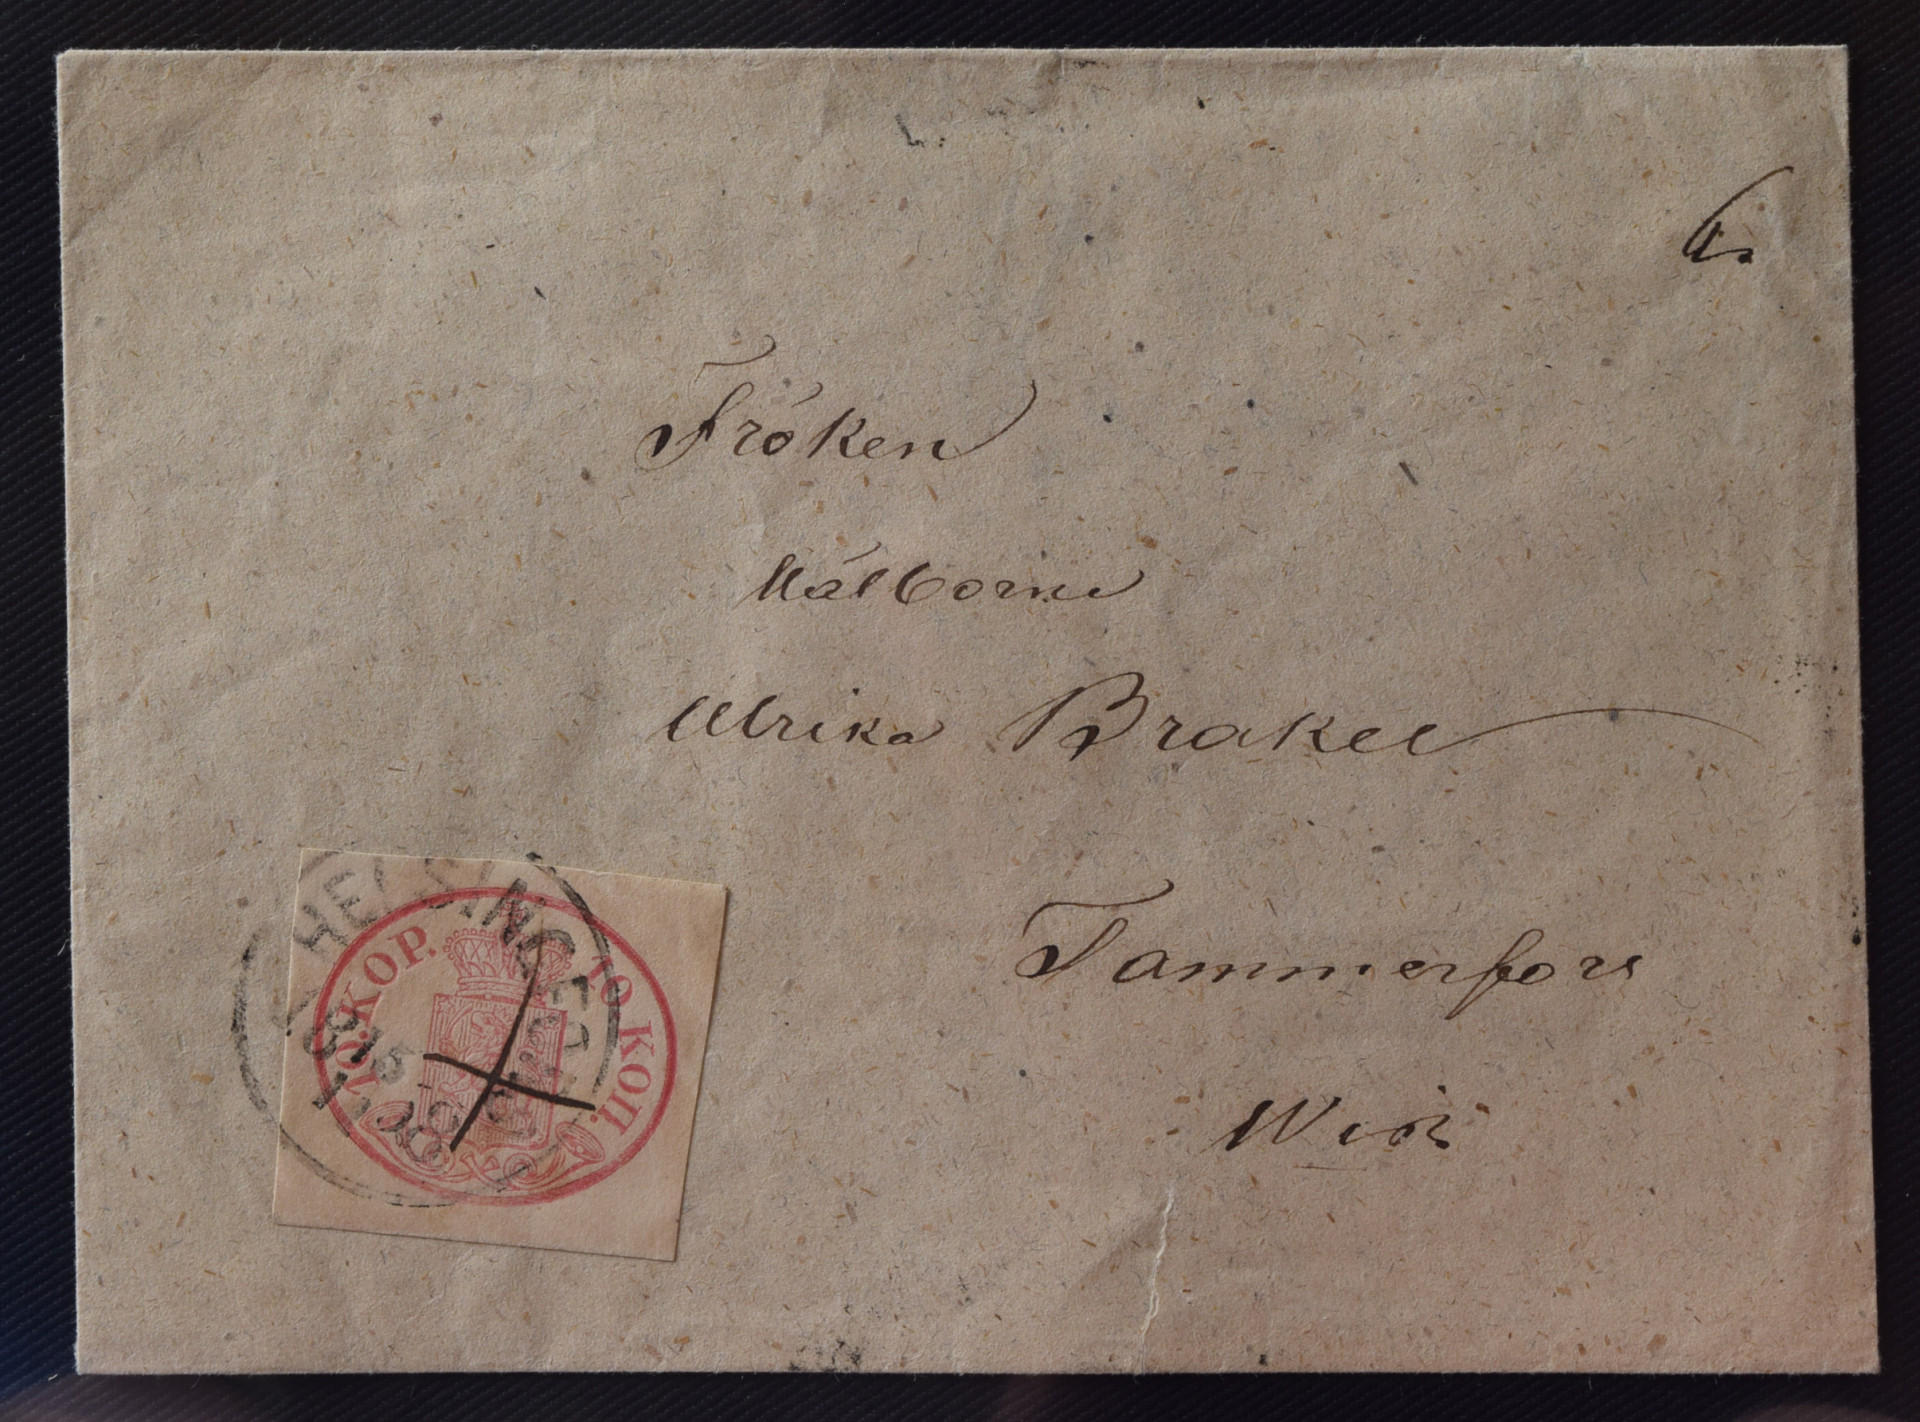 Fröken
Wälborne
Ulrika Brakel
Tammerfors
HELSINGFORS
1875
10 KOP. 10 КОП.